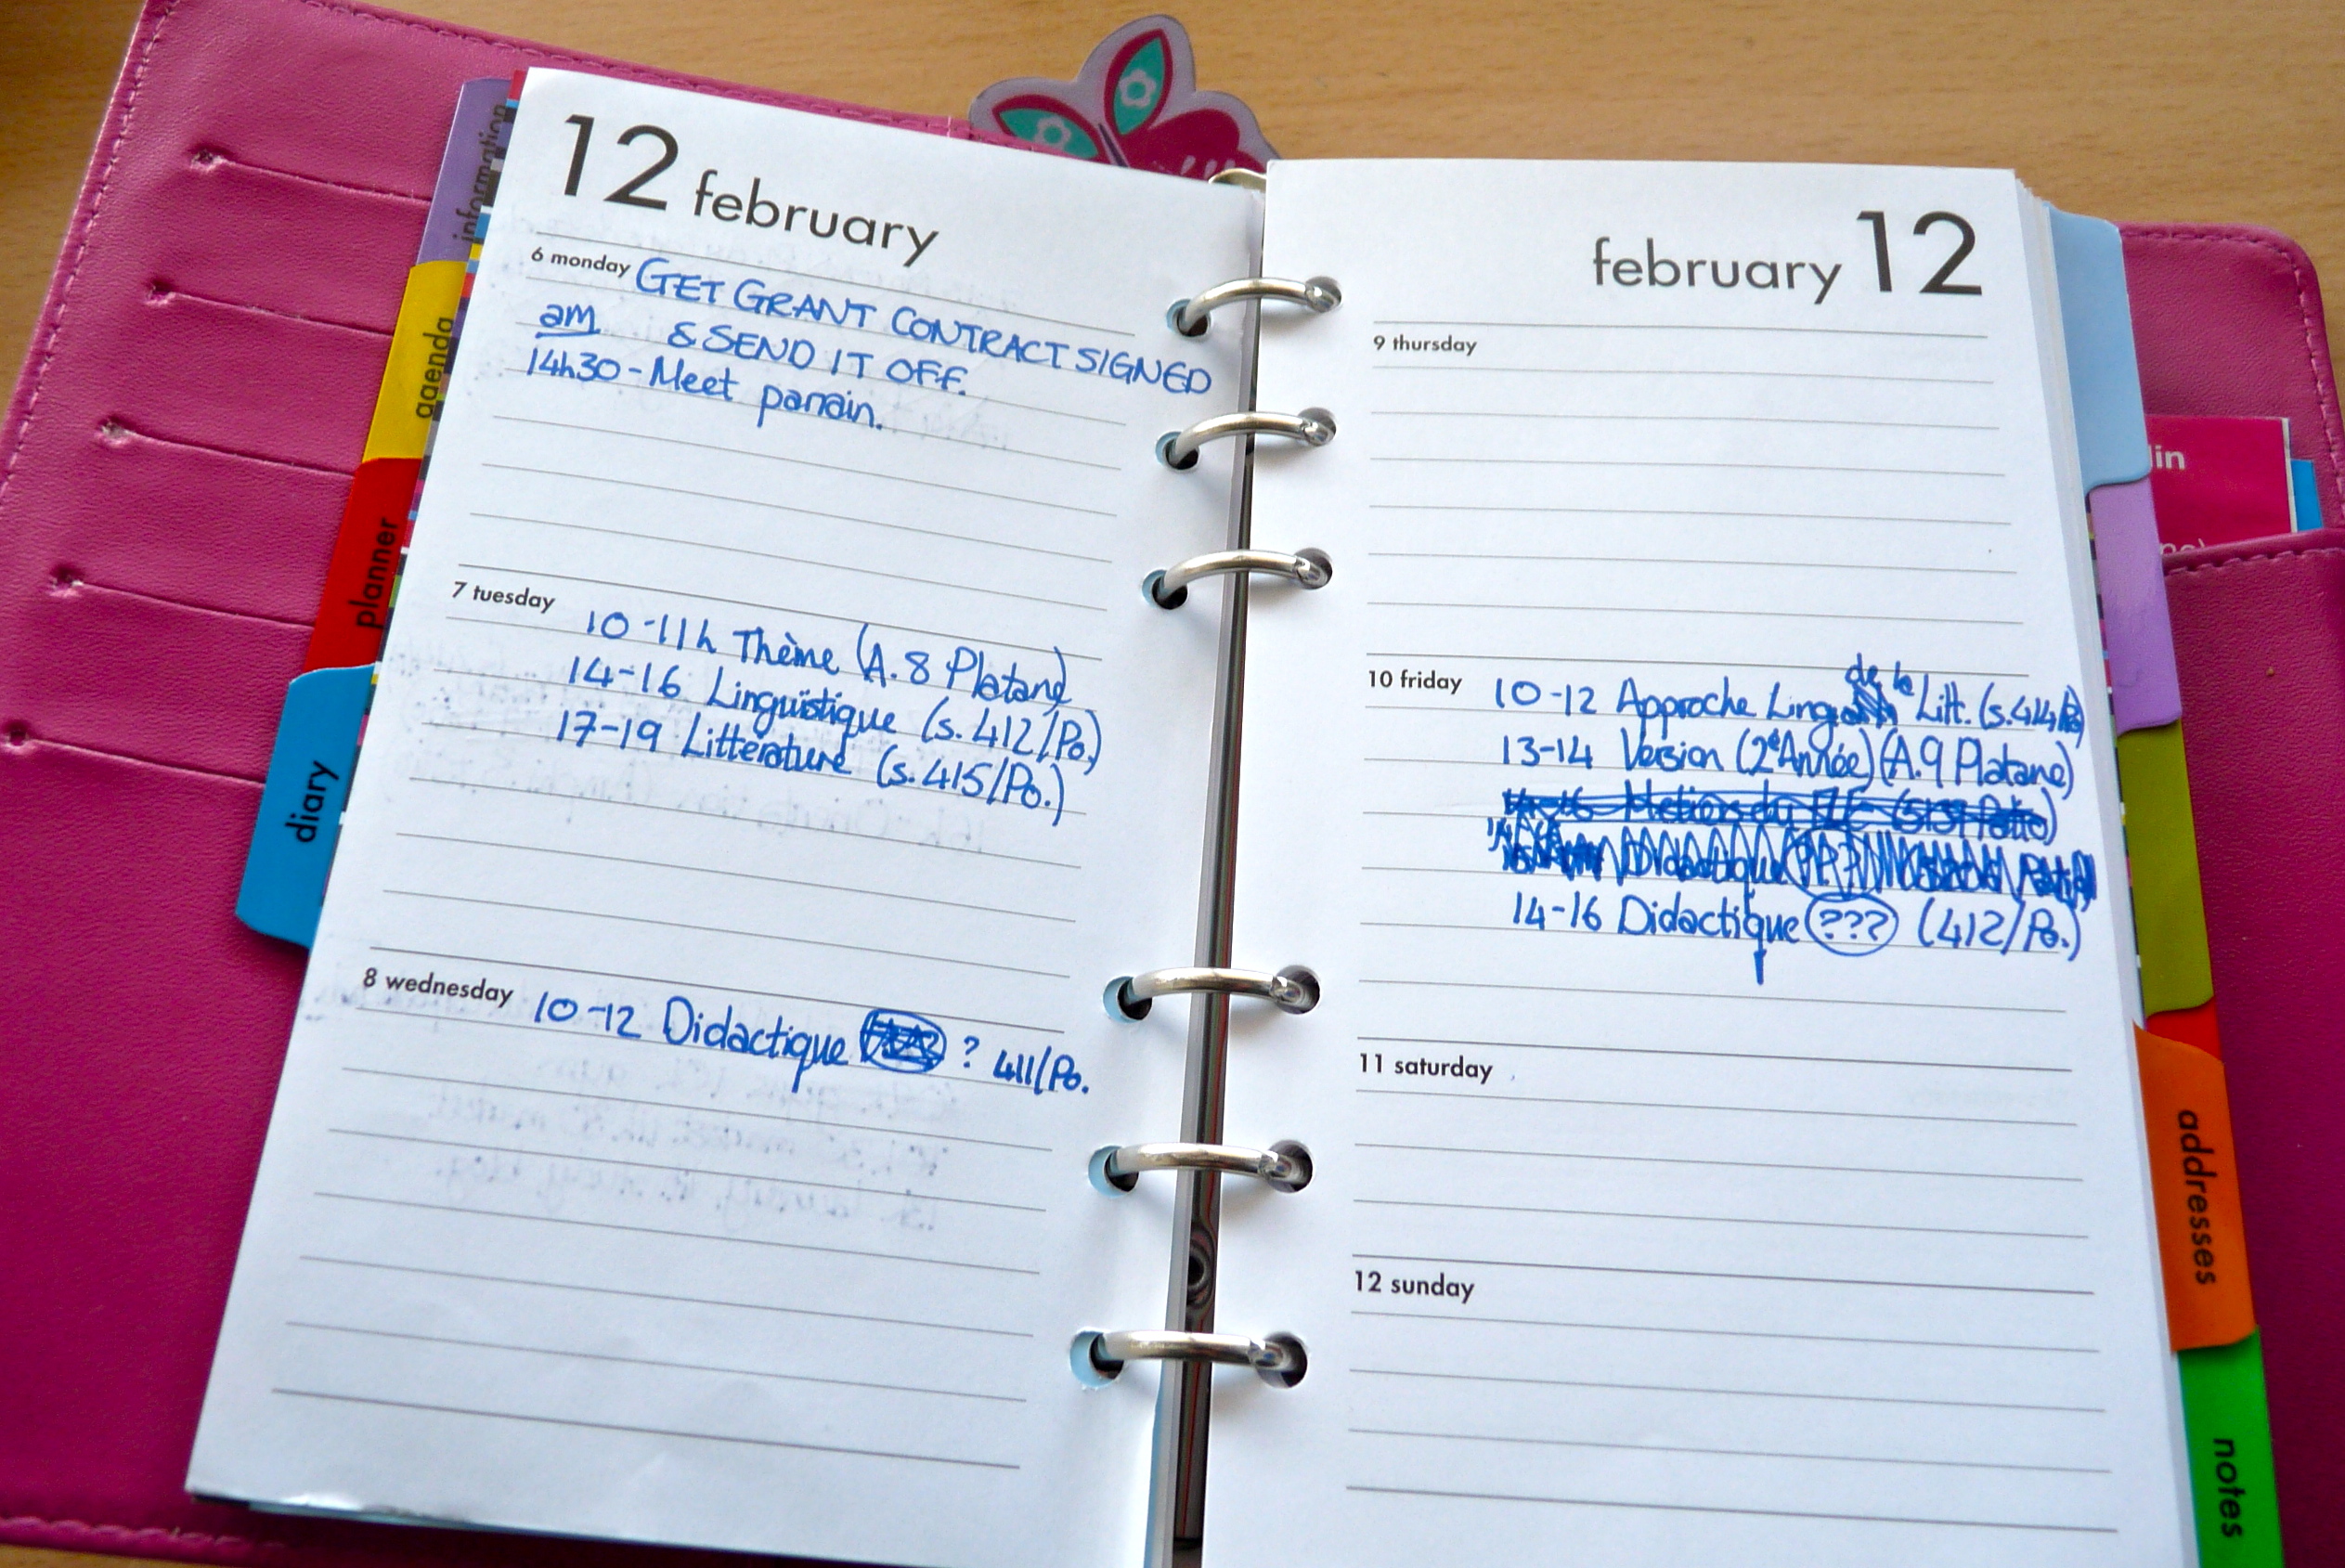 information
agenda
planner
diary
12 february
6 monday GET GRANT CONTRACT SIGNED
am & SEND IT OFF.
14h30 - Meet parrain.
7 tuesday
10-11h Thème (A.8 Platane)
14-16 Linguistique (s.412/Po.)
17-19 Littérature (s.415/Po.)
8 wednesday 10-12 Didactique ? 411/Po.
february 12
9 thursday
de la
10 friday 10-12 Approche Ling Litt. (s.414/Po)
13-14 Version (2e Année) (A.9 Platane)
14-16 Métiers du FLE
Didactique
14-16 Didactique ??? (412/Po.)
11 saturday
12 sunday
lin
addresses
notes